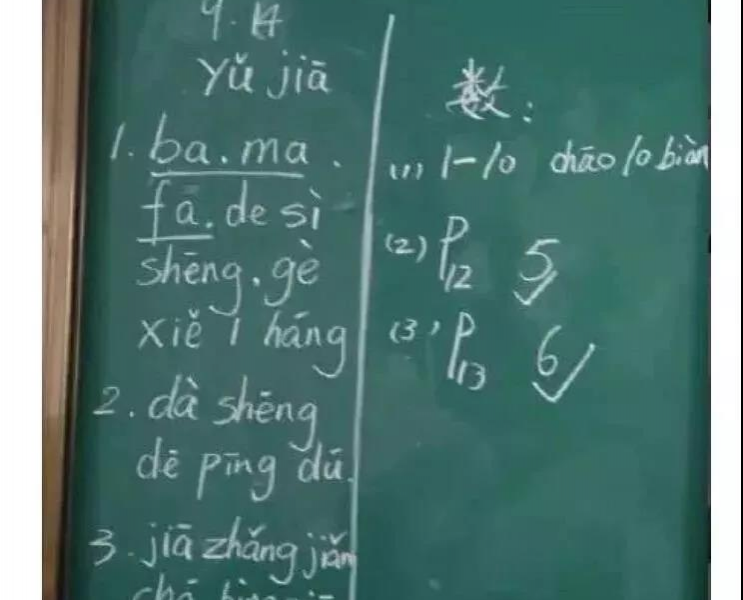 9.14
Yǔ jiā
1. ba. ma.
fā. de sì
shēng. gè
xiě 1 háng
2. dà shēng
dē pīng dū.
3. jiā zhǎng jiǎn
chá
数:
(1) 1-10 chāo 10 biàn
(2) P12 5
(3) P13 6